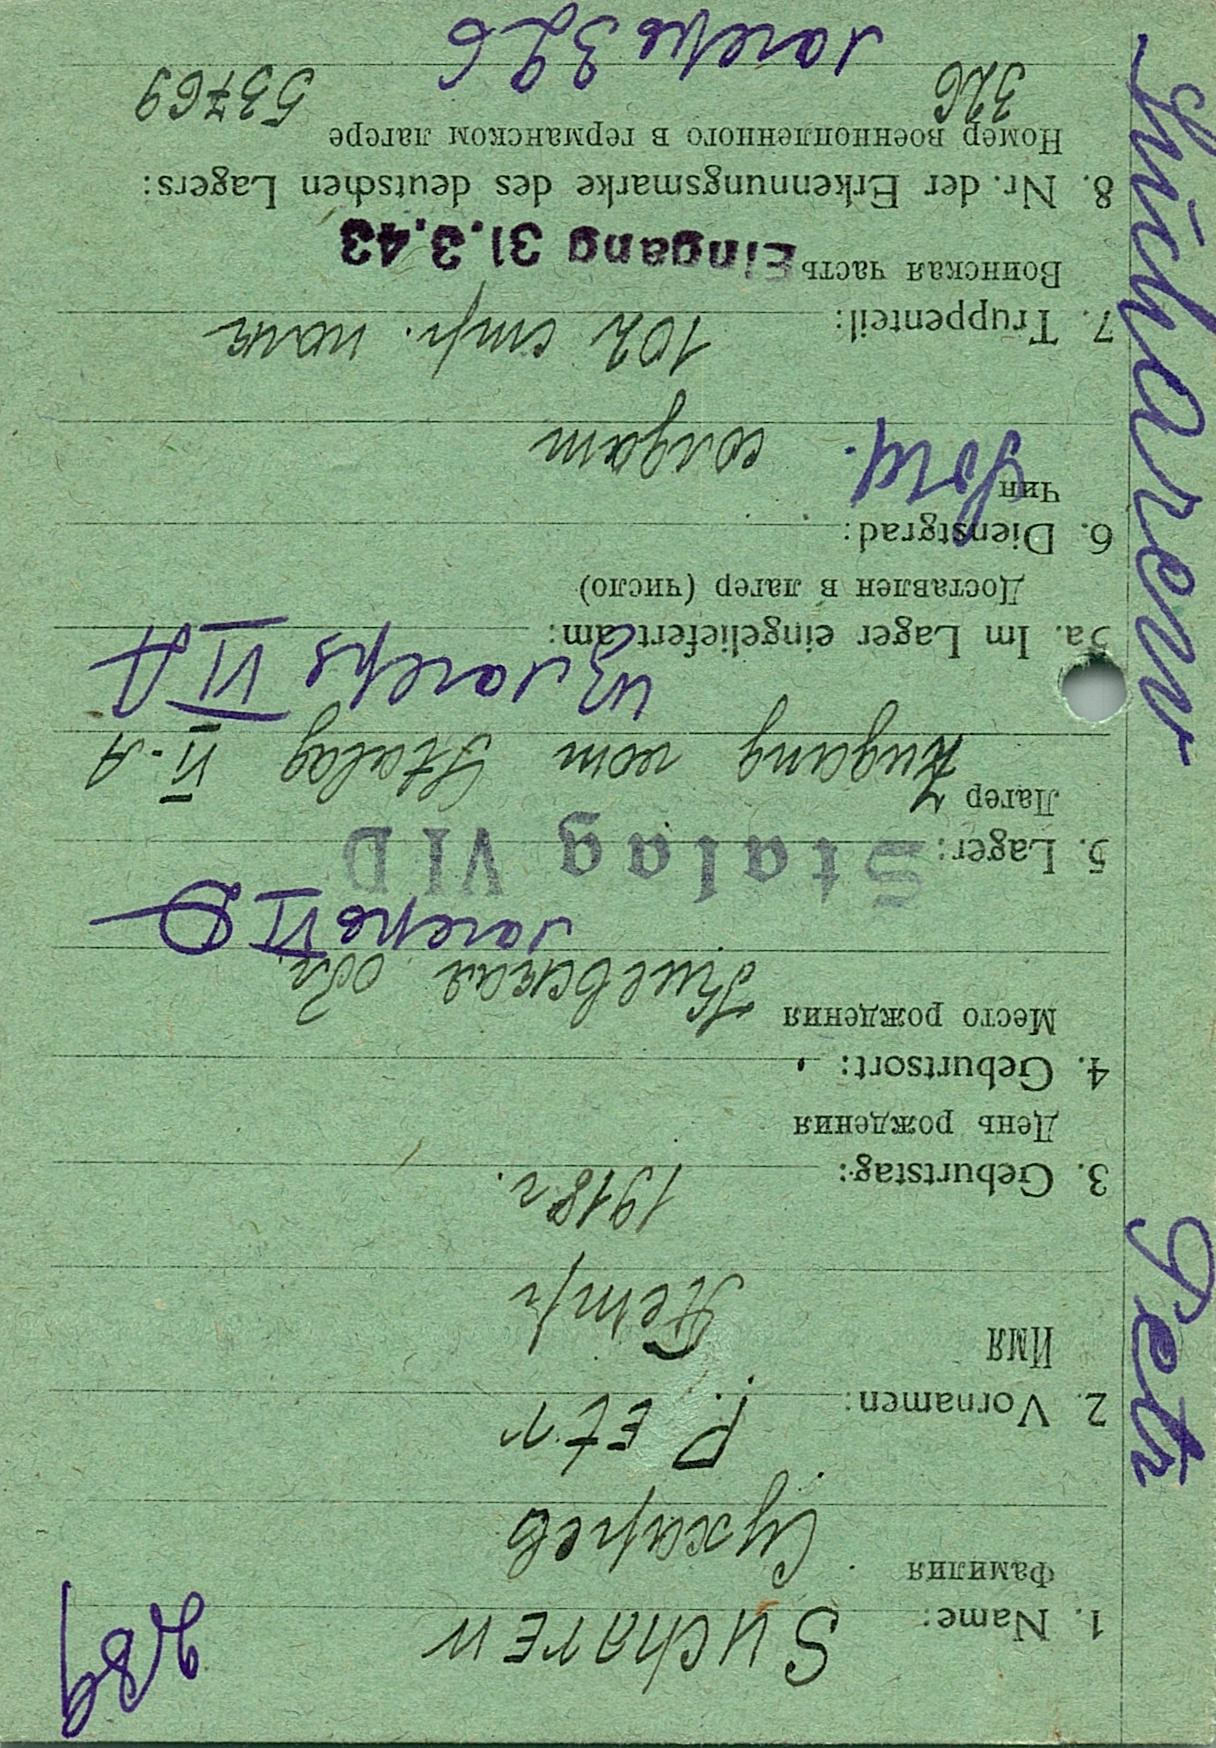 289
Sucharew Petr
1. Name: Sucharew
Фамилия Сухарев
2. Vornamen: Petr
Имя Петр
3. Geburtstag: 1918 г.
День рождения
4. Geburtsort:
Место рождения Киевская обл.
лагерь VI D
5. Lager: Stalag VI D
Лагер Zugang vom Stalag VI-A
из лагеря VI A
5a. Im Lager eingeliefert am:
Доставлен в лагер (число)
6. Dienstgrad: Sold.
Чин солдат
7. Truppenteil: 102 стр. полк
Воинская часть Eingang 31.3.43
8. Nr. der Erkennungsmarke des deutschen Lagers:
Номер военнопленного в германском лагере
326 53769
лагерь 326